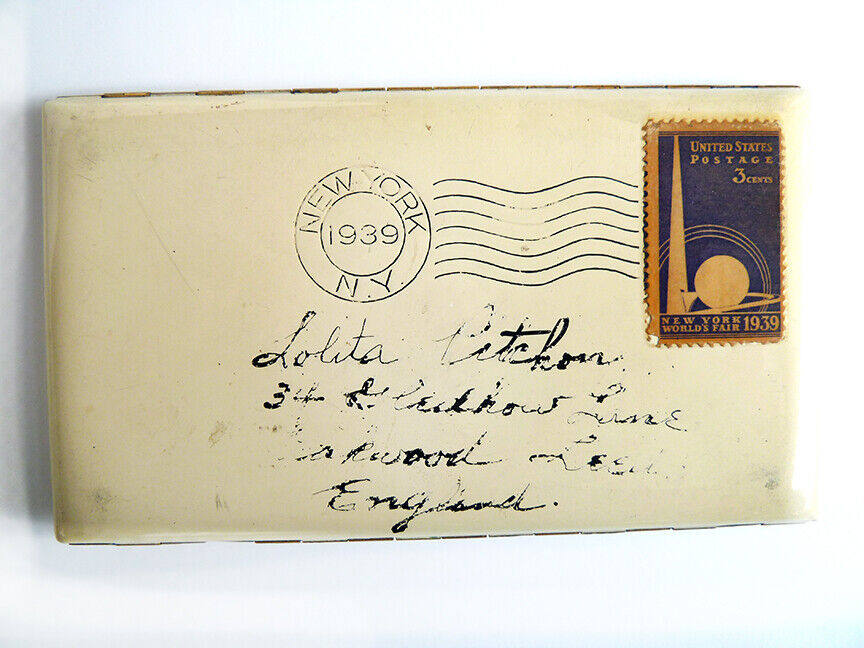 NEW YORK
1939
N.Y.
UNITED STATES
POSTAGE
3 CENTS
NEW YORK
WORLD'S FAIR 1939
Lolita Pitchon
34 Lane
England.